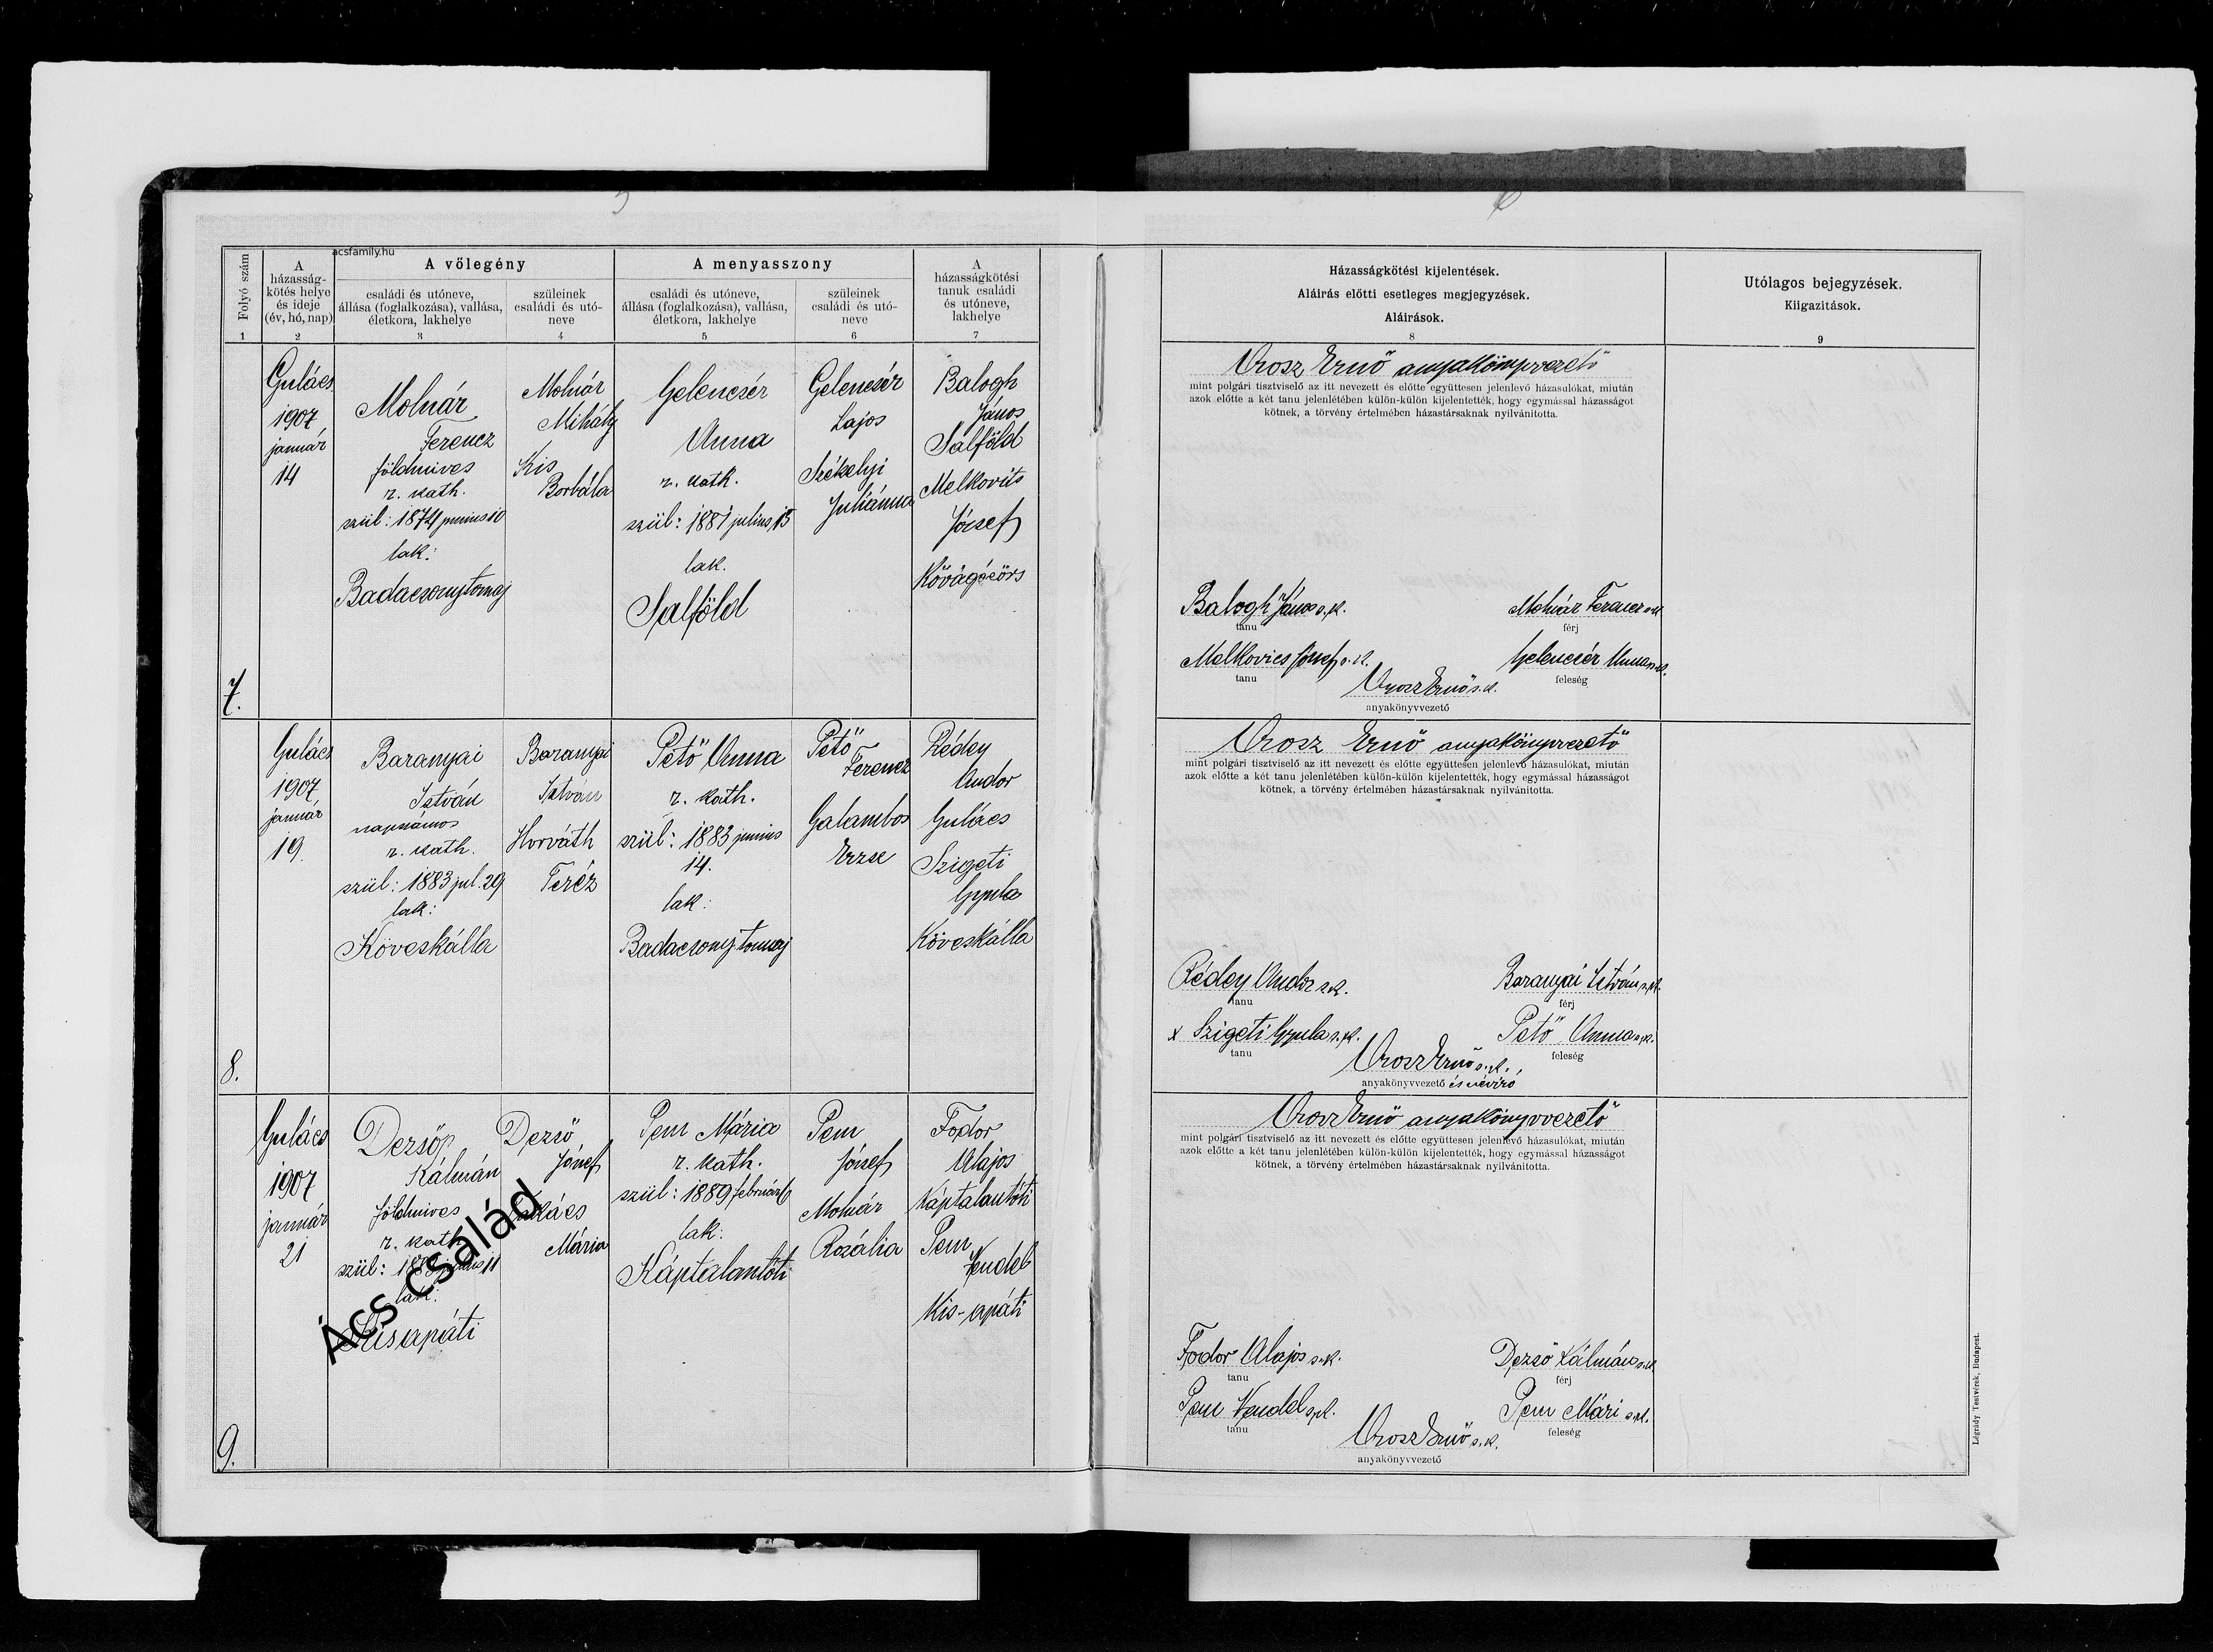 acsfamily.hu
Folyó szám
A
házasság-
kötés helye
és ideje
(év, hó, nap)
A vőlegény
családi és utóneve,
állása (foglalkozása), vallása,
életkora, lakhelye
szüleinek
családi és utó-
neve
A menyasszony
családi és utóneve,
állása (foglalkozása), vallása,
életkora, lakhelye
szüleinek
családi és utó-
neve
A
házasságkötési
tanuk családi
és utóneve,
lakhelye
Házasságkötési kijelentések.
Aláirás előtti esetleges megjegyzések.
Aláirások.
Utólagos bejegyzések.
Kiigazitások.
1 2 3 4 5 6 7 8 9
7.
Gulács
1907
január
14
Molnár
Ferencz
földmives
r. kath.
szül: 1874 junius 10
lak:
Badacsonytomaj
Molnár
Mihály
Kis
Borbála
Gelencsér
Anna
r. kath.
szül: 1881 julius 15
lak.
Salföld
Gelencsér
Lajos
Székelyi
Juliánna
Balogh
János
Salföld
Melkovits
József
Kővágóörs
Orosz Ernő anyakönyvvezető
mint polgári tisztviselő az itt nevezett és előtte együttesen jelenlevő házasulókat, miután
azok előtte a két tanu jelenlétében külön-külön kijelentették, hogy egymással házasságot
kötnek, a törvény értelmében házastársaknak nyilvánitotta.
Balogh János s.k.
tanu
Molnár Ferencz s.k.
férj
Melkovics József s.k.
tanu
Gelencsér Anna s.k.
feleség
Orosz Ernő s.k.
anyakönyvvezető
8.
Gulács
1907
január
19.
Baranyai
István
napszámos
r. kath.
szül: 1883 jul. 29
lak:
Köveskálla
Baranyai
István
Horváth
Teréz
Pető Anna
r. kath.
szül: 1883 junius
14.
lak:
Badacsonytomaj
Pető
Ferencz
Galambos
Erzse
Rédey
Andor
Gulács
Szigeti
Gyula
Köveskálla
Orosz Ernő anyakönyvvezető
mint polgári tisztviselő az itt nevezett és előtte együttesen jelenlevő házasulókat, miután
azok előtte a két tanu jelenlétében külön-külön kijelentették, hogy egymással házasságot
kötnek, a törvény értelmében házastársaknak nyilvánitotta.
Rédey Andor s.k.
tanu
Baranyai István s.k.
férj
x Szigeti Gyula s.k.
tanu
Pető Anna s.k.
feleség
Orosz Ernő s.k.,
anyakönyvvezető és névíró
9.
Gulács
1907
január
21
Dezső
Kálmán
földmives
r. kath.
lak:
Kisapáti
Dezső
József
Takács
Mária
Pem Mária
r. kath.
szül: 1889 február 6
lak:
Káptalantóti
Pem
József
Molnár
Rozália
Fodor
Alajos
Káptalantóti
Pem
Vendel
Kis-apáti
Orosz Ernő anyakönyvvezető
mint polgári tisztviselő az itt nevezett és előtte együttesen jelenlevő házasulókat, miután
azok előtte a két tanu jelenlétében külön-külön kijelentették, hogy egymással házasságot
kötnek, a törvény értelmében házastársaknak nyilvánitotta.
Fodor Alajos s.k.
tanu
Dezső Kálmán s.k.
férj
Pem Vendel s.k.
tanu
Pem Mári s.k.
feleség
Orosz Ernő s.k.
anyakönyvvezető
Légrády Testvérek, Budapest.
Ács család